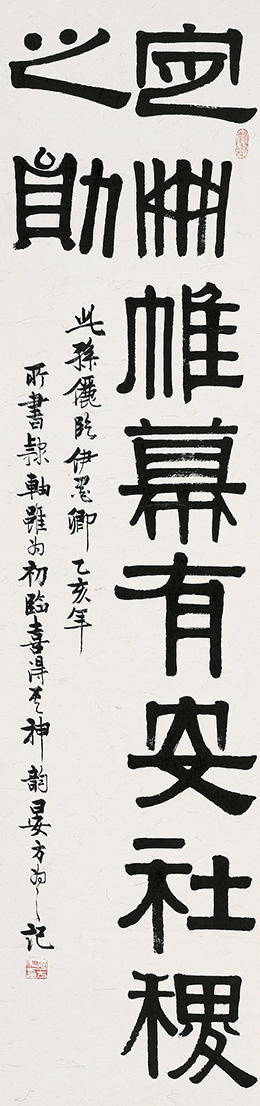 定冊帷幕有安社稷
之勛
此孫儷臨伊墨卿 乙亥年
所書隸軸雖为初臨喜得其神韵晏方为之記